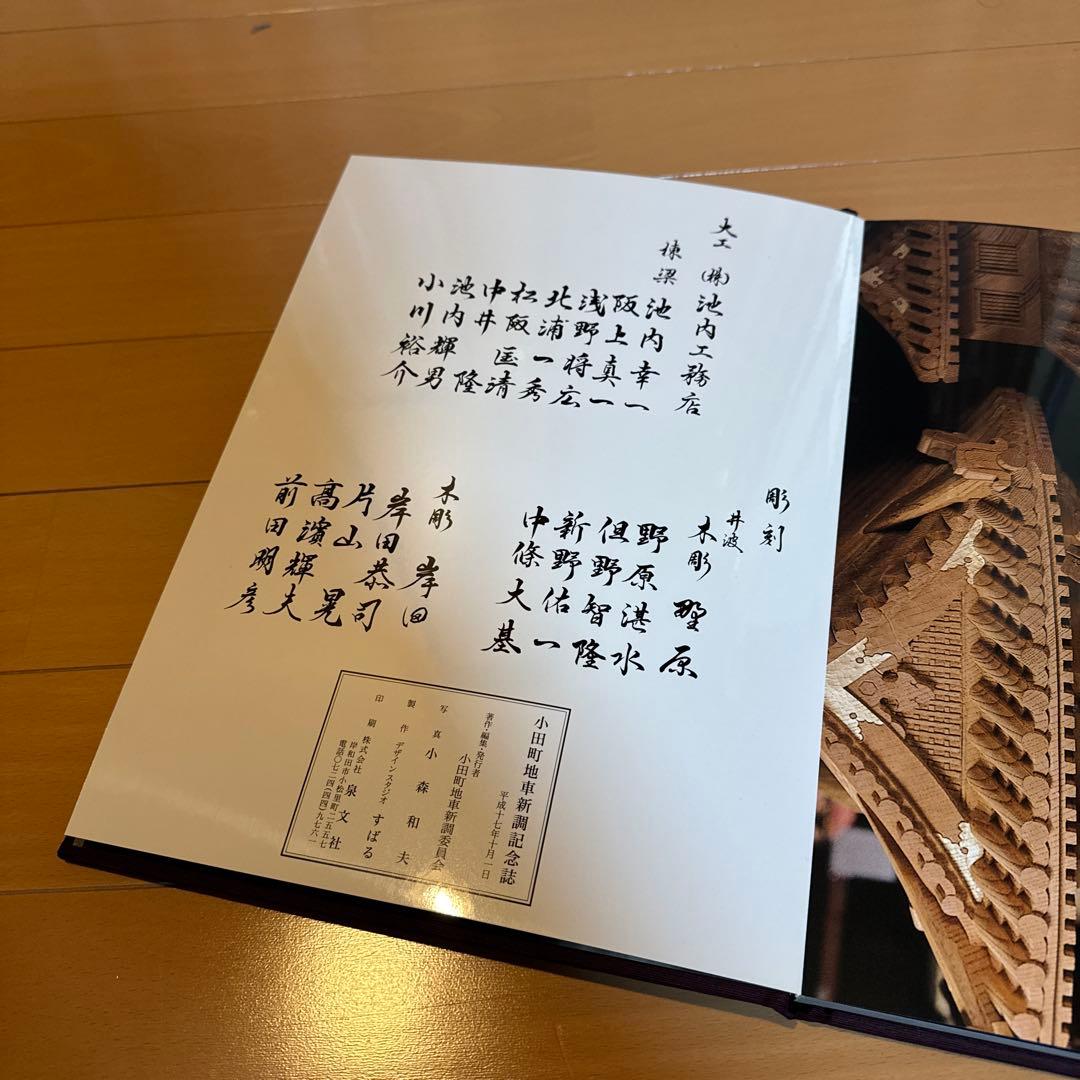 大工 (株)池内工務店
棟梁 池内幸一
阪上真一
浅野将広
北浦一秀
松阪匡清
中井隆
池内輝男
小川裕介
彫刻
井波木彫 野原
野原湛水
但野智隆
新野佑一
中條大基
木彫 岸田
岸田恭司
片山晃
高濱輝夫
前田明彦
小田町地車新調記念誌
平成十七年十月一日
著作・編集・発行者
小田町地車新調委員会
写真 小森和夫
製作 デザインスタジオ すばる
印刷 株式会社 泉文社
岸和田市小松里町二五五七
電話〇七二四(四四)九七六一